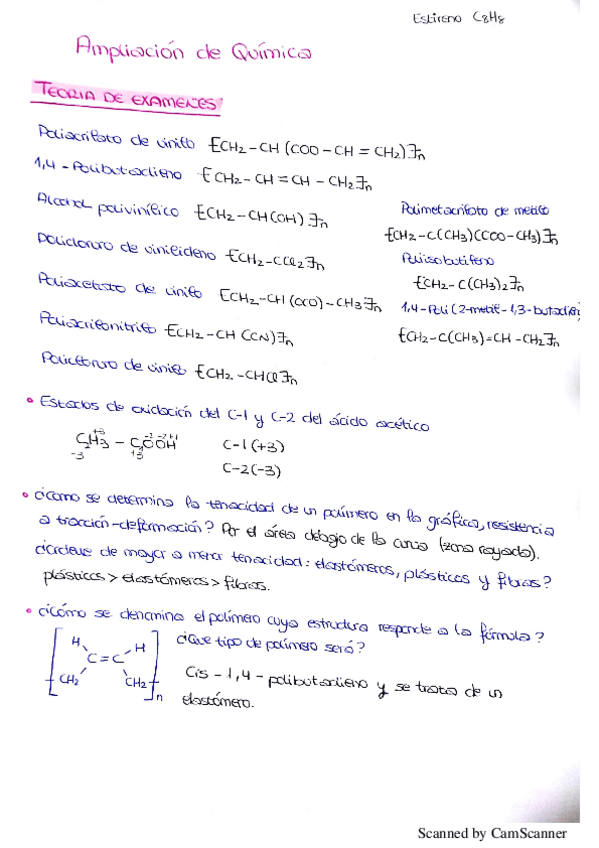 Estireno C8H8
Ampliación de Química
TEORIA DE EXAMENES
Poliacrilato de vinilo [CH2-CH(COO-CH=CH2)]n
1,4-Polibutadieno [CH2-CH=CH-CH2]n
Alcohol polivinílico [CH2-CH(OH)]n
Polimetacrilato de metilo
[CH2-C(CH3)(COO-CH3)]n
Policloruro de vinilideno [CH2-CCl2]n
Poliisobutileno
[CH2-C(CH3)2]n
Poliacetato de vinilo [CH2-CH(OCO)-CH3]n
1,4-Poli(2-metil-1,3-butadie
Poliacrilonitrilo [CH2-CH(CN)]n
[CH2-C(CH3)=CH-CH2]n
Policloruro de vinilo [CH2-CHCl]n
• Estados de oxidación del C-1 y C-2 del ácido acético
CH3-COOH
C-1(+3)
-3 +3
C-2(-3)
• ¿Cómo se determina la tenacidad de un polímero en la gráfica, resistencia
a tracción-deformación? Por el área debajo de la curva (zona rayada).
¿Ordene de mayor a menor tenacidad: elastómeros, plásticos y fibras?
plásticos > elastómeros > fibras.
• ¿Cómo se denomina el polímero cuya estructura responde a la fórmula?
¿Qué tipo de polímero será?
H H
C=C
CH2 CH2 n
Cis-1,4-polibutadieno y se trata de un
elastómero.
Scanned by CamScanner